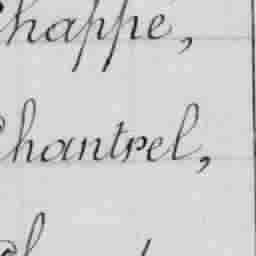 Chappe,
Chantrel,